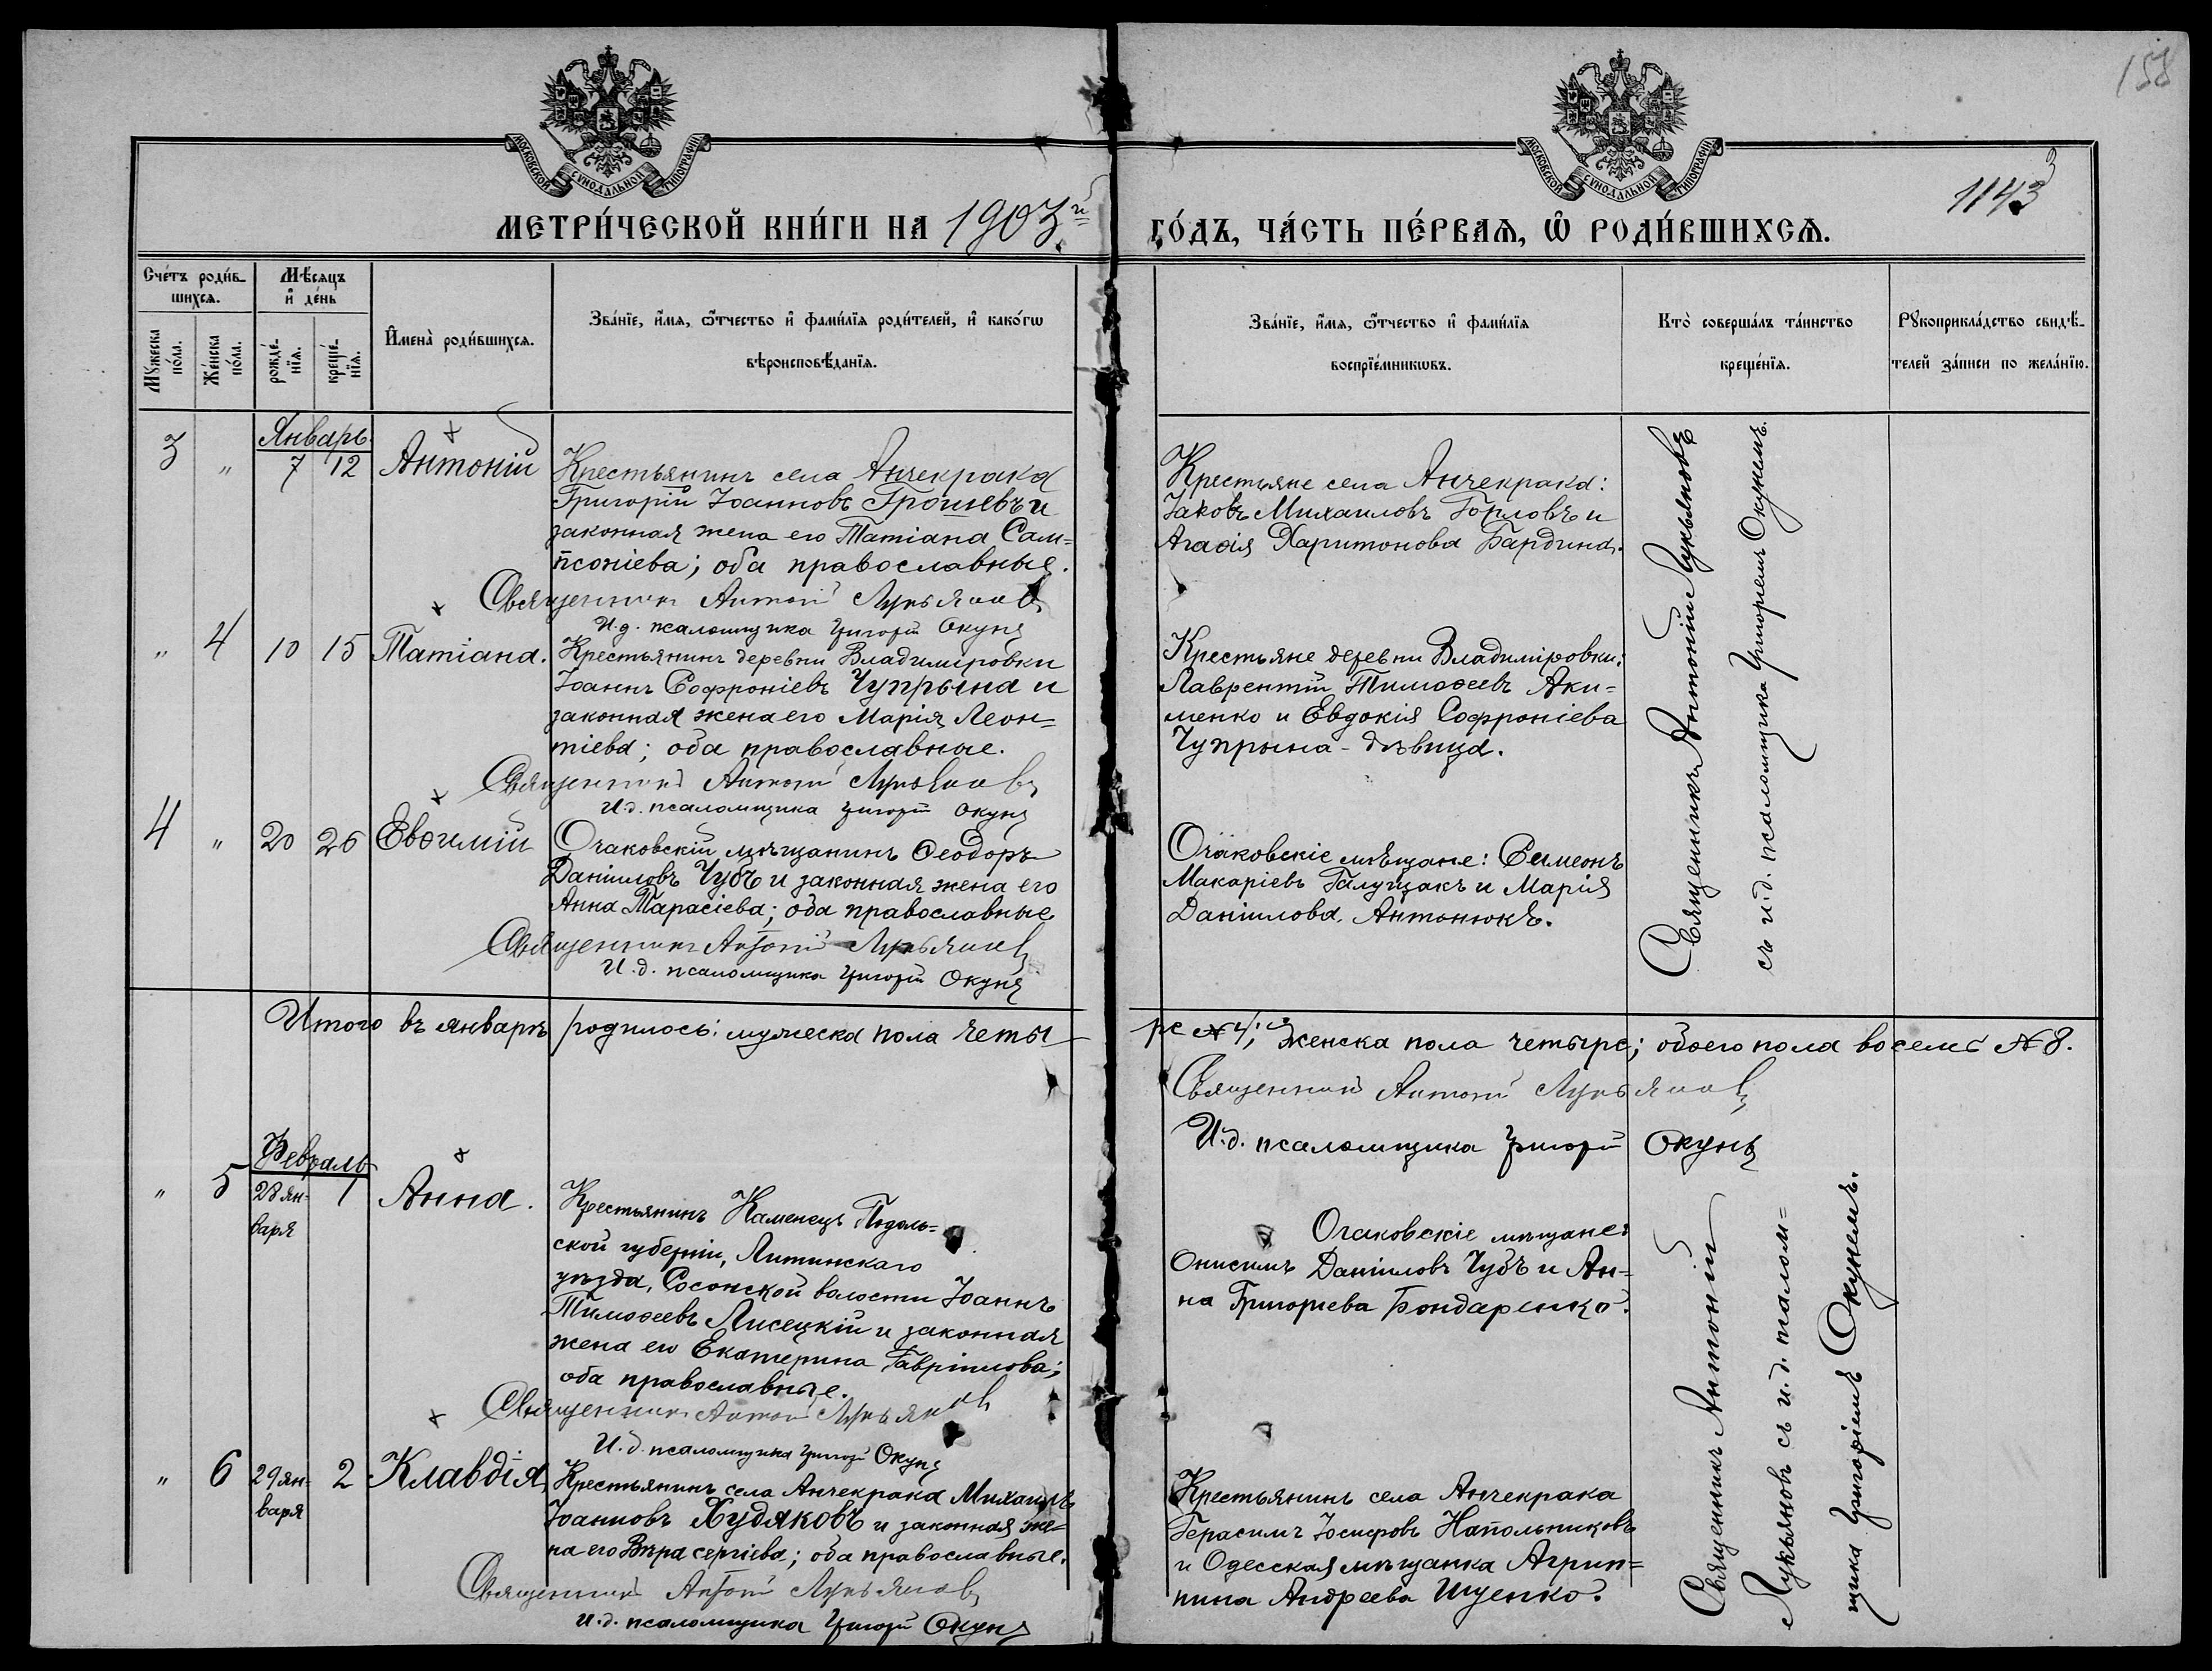 158
1143
МОСКОВСКОЙ СУНОДАЛЬНОЙ ТИПОГРАФІИ
МОСКОВСКОЙ СУНОДАЛЬНОЙ ТИПОГРАФІИ
МЕТРИ́ЧЕСКОЙ КНИ́ГИ НА 1903й ГО́ДЪ, ЧА́СТЬ ПЕ́РВАѦ, Ѽ РОДИ́ВШИХСѦ.
Сче́тъ роди́в-
шихсѧ.
Мꙋ́жеска по́ла.
Же́нска по́ла.
Мѣ́сѧцъ
и҆ де́нь
рожде́-
нїѧ.
креще́-
нїѧ.
И҆мена̀ роди́вшихсѧ.
Зва́нїе, и҆́мѧ, ѻ҆́тчество и҆ фами́лїѧ роди́телей, и҆ како́гѡ
вѣроисповѣ́данїѧ.
Зва́нїе, и҆́мѧ, ѻ҆́тчество и҆ фами́лїѧ
воспрїе́мникѡвъ.
Кто̀ соверша́лъ та́инство
креще́нїѧ.
Рꙋкоприкла́дство свидѣ́-
телей за́писи по жела́нїю.
Январь
3 " 7 12 Антоній
Крестьянинъ села Анчекрака
Григорій Іоанновъ Грошевъ и
законная жена его Татіана Сам-
псоніева; оба православные.
Священникъ Антоній Лукьяновъ
И.д. псаломщика Григорій Окунь
Крестьяне села Анчекрака:
Іаковъ Михаиловъ Горловъ и
Агаѳія Харитонова Бардина.
" 4 10 15 Татіана.
Крестьянинъ деревни Владиміровки
Іоаннъ Софроніевъ Чупрына и
законная жена его Марія Леон-
тіева; оба православные.
Священникъ Антоній Лукьяновъ
И.д. псаломщика Григорій Окунь
Крестьяне деревни Владиміровки:
Лаврентій Тимоѳеевъ Аки-
менко и Евдокія Софроніева
Чупрына - дѣвица.
4 " 20 26 Евѳимій
Очаковскій мѣщанинъ Ѳеодоръ
Даніиловъ Чубъ и законная жена его
Анна Тарасіева; оба православные
Священникъ Антоній Лукьяновъ
И.д. псаломщика Григорій Окунь
Очаковскіе мѣщане: Симеонъ
Макаріевъ Галущакъ и Марія
Даніилова Антонюкъ.
Священникъ Антоній Лукьяновъ
съ и.д. псаломщика Григоріемъ Окунемъ.
Итого въ январѣ родилось: мужеска пола четы-
ре № 4; женска пола четыре; обоего пола восемь № 8.
Священникъ Антоній Лукьяновъ
И.д. псаломщика Григорій Окунь
Февраль
" 5 28 ян-
варя 1 Анна.
Крестьянинъ Каменецъ Подоль-
ской губерніи, Литинскаго
уѣзда, Сосонской волости Іоаннъ
Тимоѳеевъ Лисецкій и законная
жена его Екатерина Гавріилова;
оба православные.
Священникъ Антоній Лукьяновъ
И.д. псаломщика Григорій Окунь
Очаковскіе мѣщане:
Онисимъ Даніиловъ Чубъ и Ан-
на Григорьева Бондаренко.
" 6 29 ян-
варя 2 Клавдія
Крестьянинъ села Анчекрака Михаилъ
Іоанновъ Худяковъ и законная же-
на его Вѣра Сергіева; оба православные.
Священникъ Антоній Лукьяновъ
И.д. псаломщика Григорій Окунь
Крестьянинъ села Анчекрака
Герасимъ Іосифовъ Напольниковъ
и Одесская мѣщанка Агрип-
пина Андреева Ищенко.
Священникъ Антоній
Лукьяновъ съ и.д. псалом-
щика Григоріемъ Окунемъ.